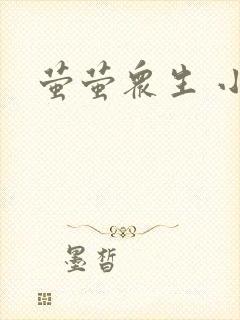 萤萤众生 小
墨皙